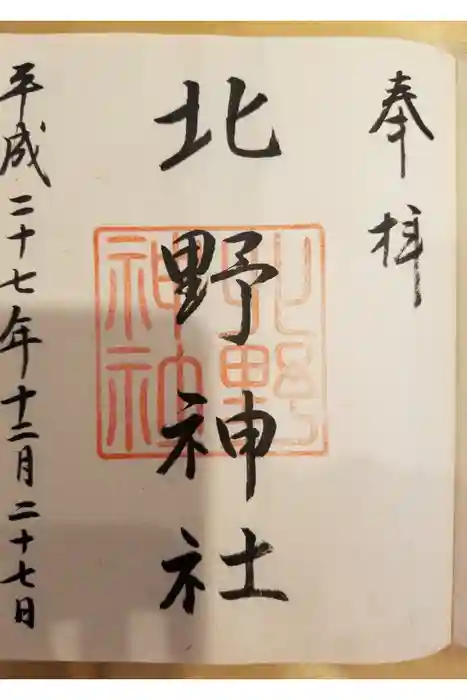 奉拝
北野神社
北野神社
平成二十七年十二月二十七日